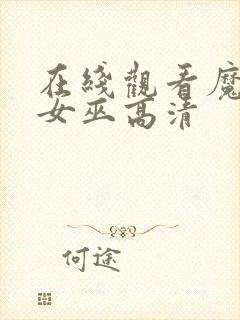 在綫觀看魔
女巫高清
何途